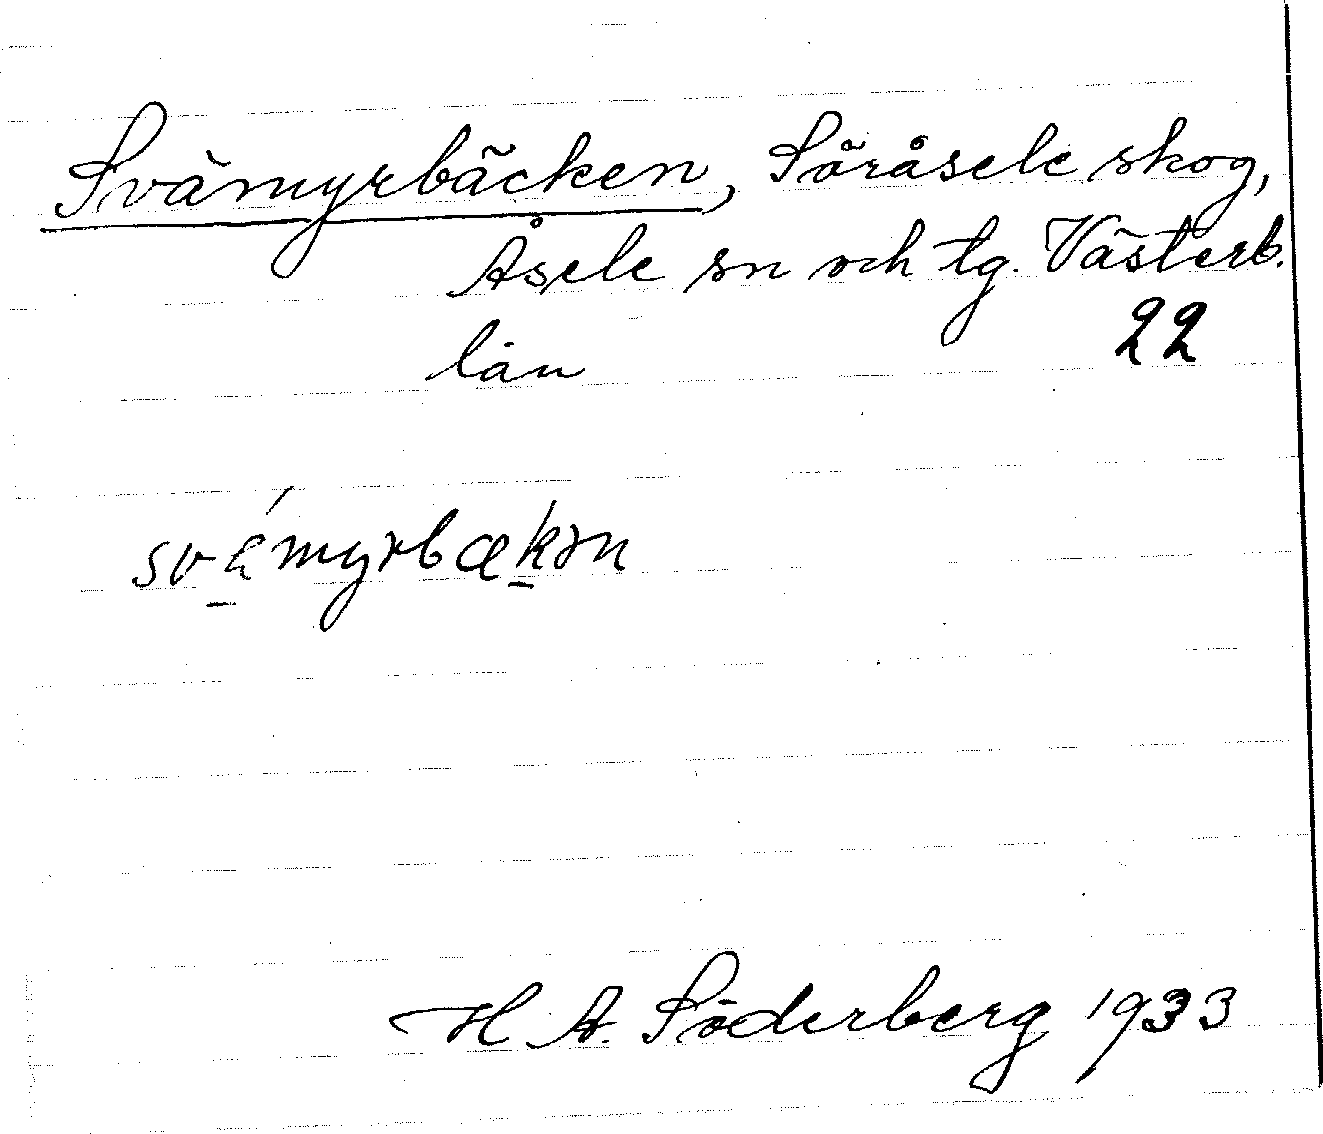 Svämyrbäcken, Söråsele skog,
Åsele sn och tg. Västerb.
län 22
svämyrbækən
H. A. Söderberg 1933